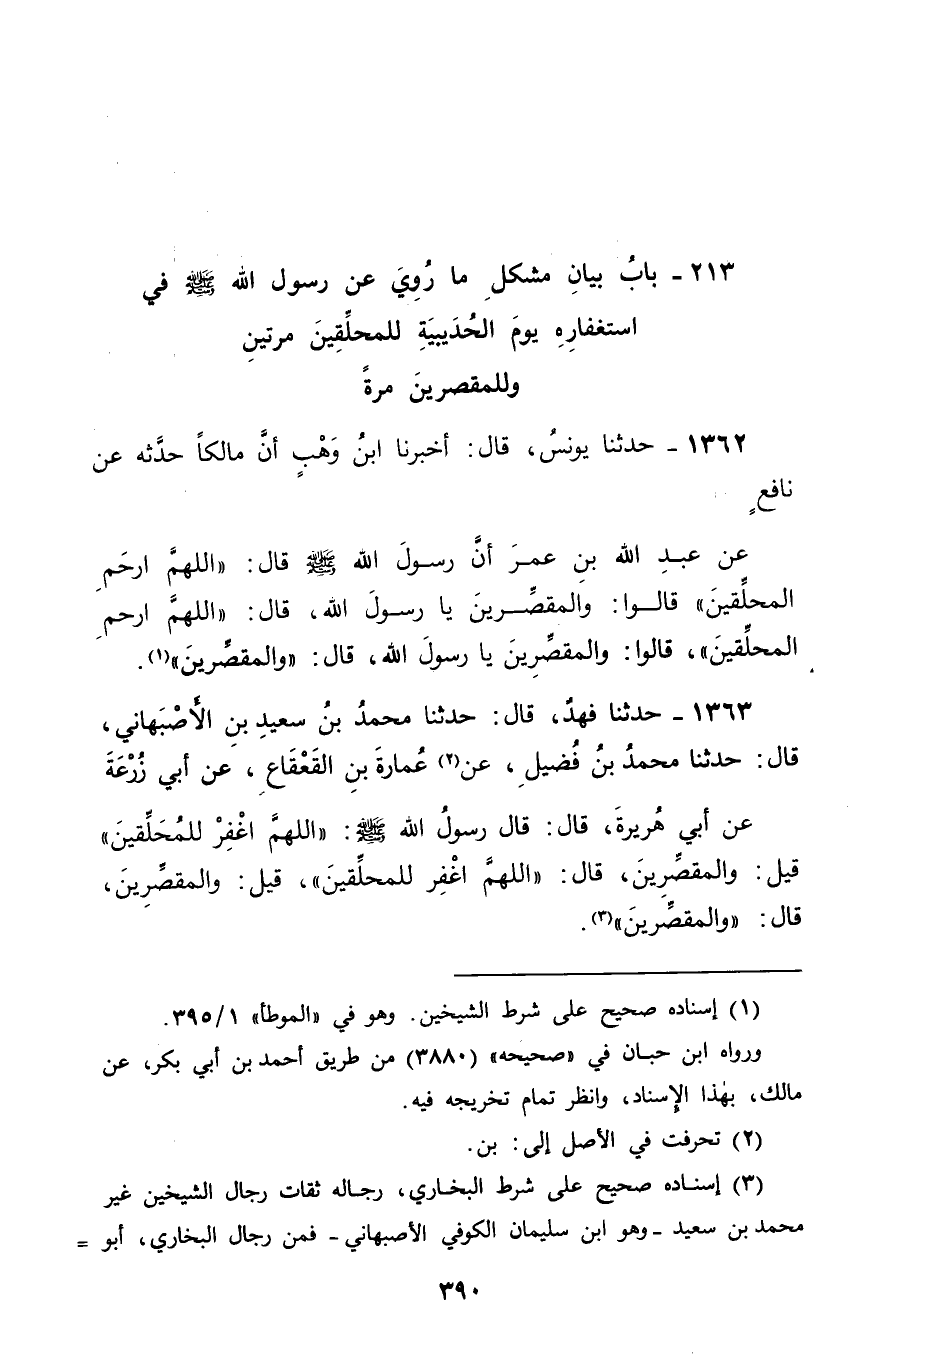 ٢١٣ - بابُ بيانِ مشكلِ ما رُوِيَ عن رسول الله ﷺ في
استغفارِهِ يومَ الحُدَيبيَةِ للمحلِّقِينَ مرتينِ
وللمقصرينَ مرةً
١٣٦٢ - حدثنا يونسُ، قال: أخبرنا ابنُ وَهْبٍ أنَّ مالكاً حدَّثه عن
نافعٍ
عن عبدِ الله بنِ عمرَ أنَّ رسولَ الله ﷺ قال: «اللهمَّ ارحَمِ
المحلِّقينَ» قالوا: والمقصِّرينَ يا رسولَ الله، قال: «اللهمَّ ارحمِ
المحلِّقينَ»، قالوا: والمقصِّرِينَ يا رسولَ الله، قال: «والمقصِّرينَ»(١).
١٣٦٣ - حدثنا فهدٌ، قال: حدثنا محمدُ بنُ سعيدِ بنِ الأَصْبَهاني،
قال: حدثنا محمدُ بنُ فُضيلٍ، عن(٢) عُمارةَ بنِ القَعْقَاعِ، عن أبي زُرْعَةَ
عن أبي هُريرةَ، قال: قال رسولُ الله ﷺ: «اللهمَّ اغْفِرْ للمُحَلِّقينَ»
قيل: والمقصِّرِينَ، قال: «اللهمَّ اغْفِر للمحلِّقينَ»، قيل: والمقصِّرِينَ،
قال: «والمقصِّرينَ»(٣).
(١) إسناده صحيح على شرط الشيخين. وهو في «الموطأ» ٣٩٥/١.
ورواه ابن حبان في «صحيحه» (٣٨٨٠) من طريق أحمد بن أبي بكر، عن
مالك، بهٰذا الإِسناد، وانظر تمام تخريجه فيه.
(٢) تحرفت في الأصل إلى: بن.
(٣) إسناده صحيح على شرط البخاري، رجاله ثقات رجال الشيخين غير
محمد بن سعيد - وهو ابن سليمان الكوفي الأصبهاني - فمن رجال البخاري، أبو =
٣٩٠